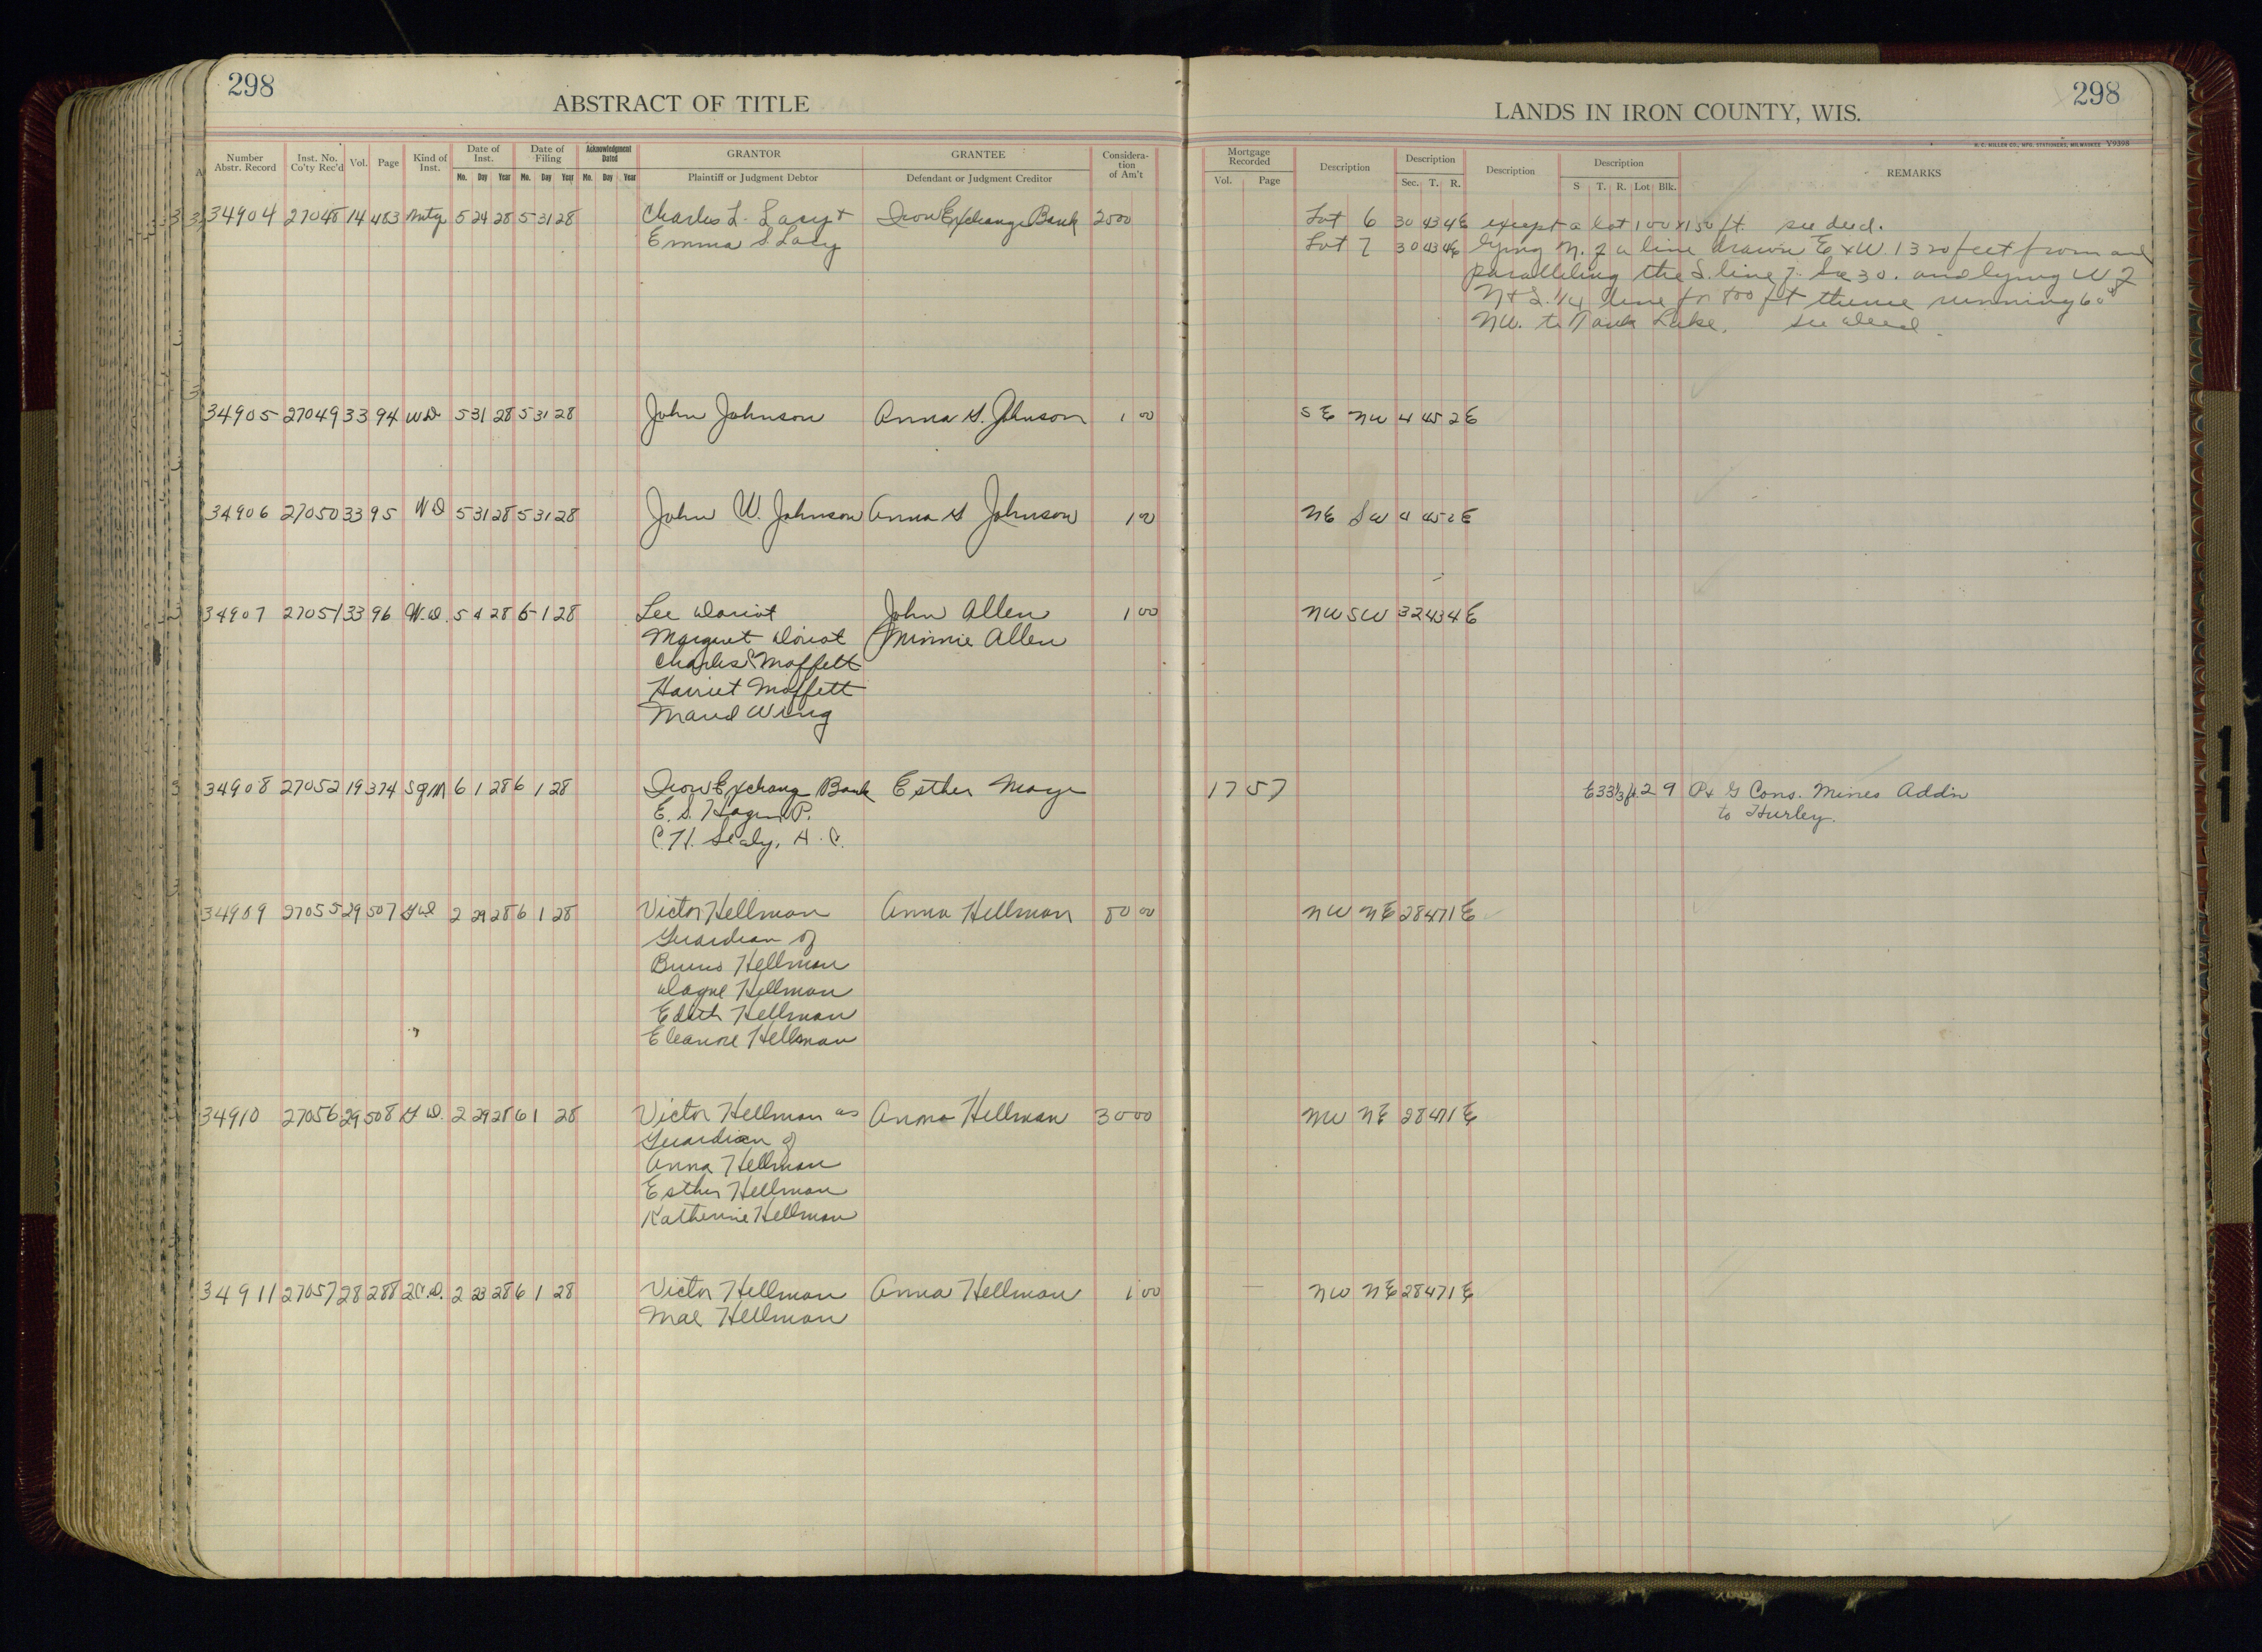 298
ABSTRACT OF TITLE
LANDS IN IRON COUNTY, WIS.
298
H. C. MILLER CO., MFG. STATIONERS, MILWAUKEE V9395
Number Abstr. Record Inst. No. Co'ty Rec'd Vol. Page Kind of Inst. Date of Inst. Date of Filing Acknowledgment Dated GRANTOR GRANTEE Considera-tion of Am't Mortgage Recorded Description Description Description Description REMARKS
Mo. Day Year Mo. Day Year Mo. Day Year Plaintiff or Judgment Debtor Defendant or Judgment Creditor Vol. Page Sec. T. R. S T. R. Lot Blk.
34904 27048 14 483 Mtg 5 24 28 5 31 28 Charles L. Lacy + Iron Exchange Bank 2500 Lot 6 30 43 4E except a lot 100 x 150 ft. see deed.
Emma S. Lacy Lot 7 30 43 4E lying N. of a line drawn E & W. 1320 feet from and
paralleling the S. line of Sec 30. and lying W of
N & S. 1/4 line for 800 ft thence running 60°
NW. to Tank Lake. see deed.
34905 27049 33 94 WD 5 31 28 5 31 28 John Johnson Anna G. Johnson 1 00 SE NW 4 45 2E
34906 27050 33 95 WD 5 31 28 5 31 28 John W. Johnson Anna G Johnson 1 00 NE SW 4 45 2E
34907 27051 33 96 W.D. 5 4 28 6 1 28 Lee Doriot John Allen 1 00 NW SW 32 43 4E
Margaret Doriot Minnie Allen
Charles Moffett
Harriet Moffett
Maud Wing
34908 27052 19 374 Sgm 6 1 28 6 1 28 Iron Exchang Bank Esther 17 57 E 33 1/3 ft. 2 9 P & G Cons. Mines Add'n
E. S. Hagen P. to Hurley.
C. H. Sealy, A. C.
34909 27055 29 507 GD 2 29 28 6 1 28 Victor Hellman Anna Hellman 80 00 NW NE 28 47 1E
Guardian of
Bruno Hellman
Dagne Hellman
Edith Hellman
Eleanore Hellman
34910 27056 29 508 G D. 2 29 28 6 1 28 Victor Hellman as Anna Hellman 30 00 NW NE 28 47 1E
Guardian of
Anna Hellman
Esther Hellman
Katherine Hellman
34911 27057 28 288 2.C.D. 2 23 28 6 1 28 Victor Hellman Anna Hellman 1 00 NW NE 28 47 1E
Mae Hellman